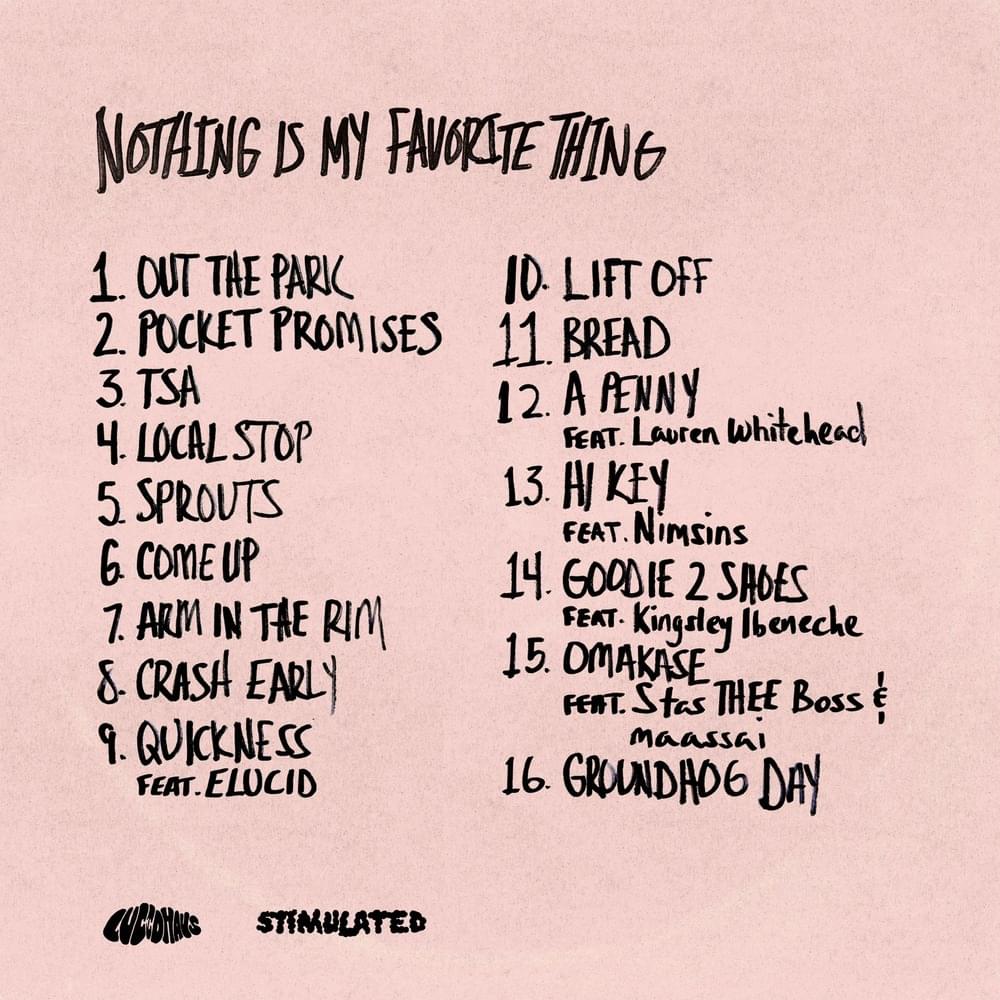 NOTHING IS MY FAVORITE THING
1. OUT THE PARK
2. POCKET PROMISES
3. TSA
4. LOCAL STOP
5. SPROUTS
6. COME UP
7. ARM IN THE RIM
8. CRASH EARLY
9. QUICKNESS
FEAT. ELUCID
10. LIFT OFF
11. BREAD
12. A PENNY
FEAT. Lauren Whitehead
13. HI KEY
FEAT. Nimsins
14. GOODIE 2 SHOES
FEAT. Kingsley Ibeneche
15. OMAKASE
FEAT. Stas THEE Boss &
maassai
16. GROUNDHOG DAY
LUCIDHAUS
STIMULATED